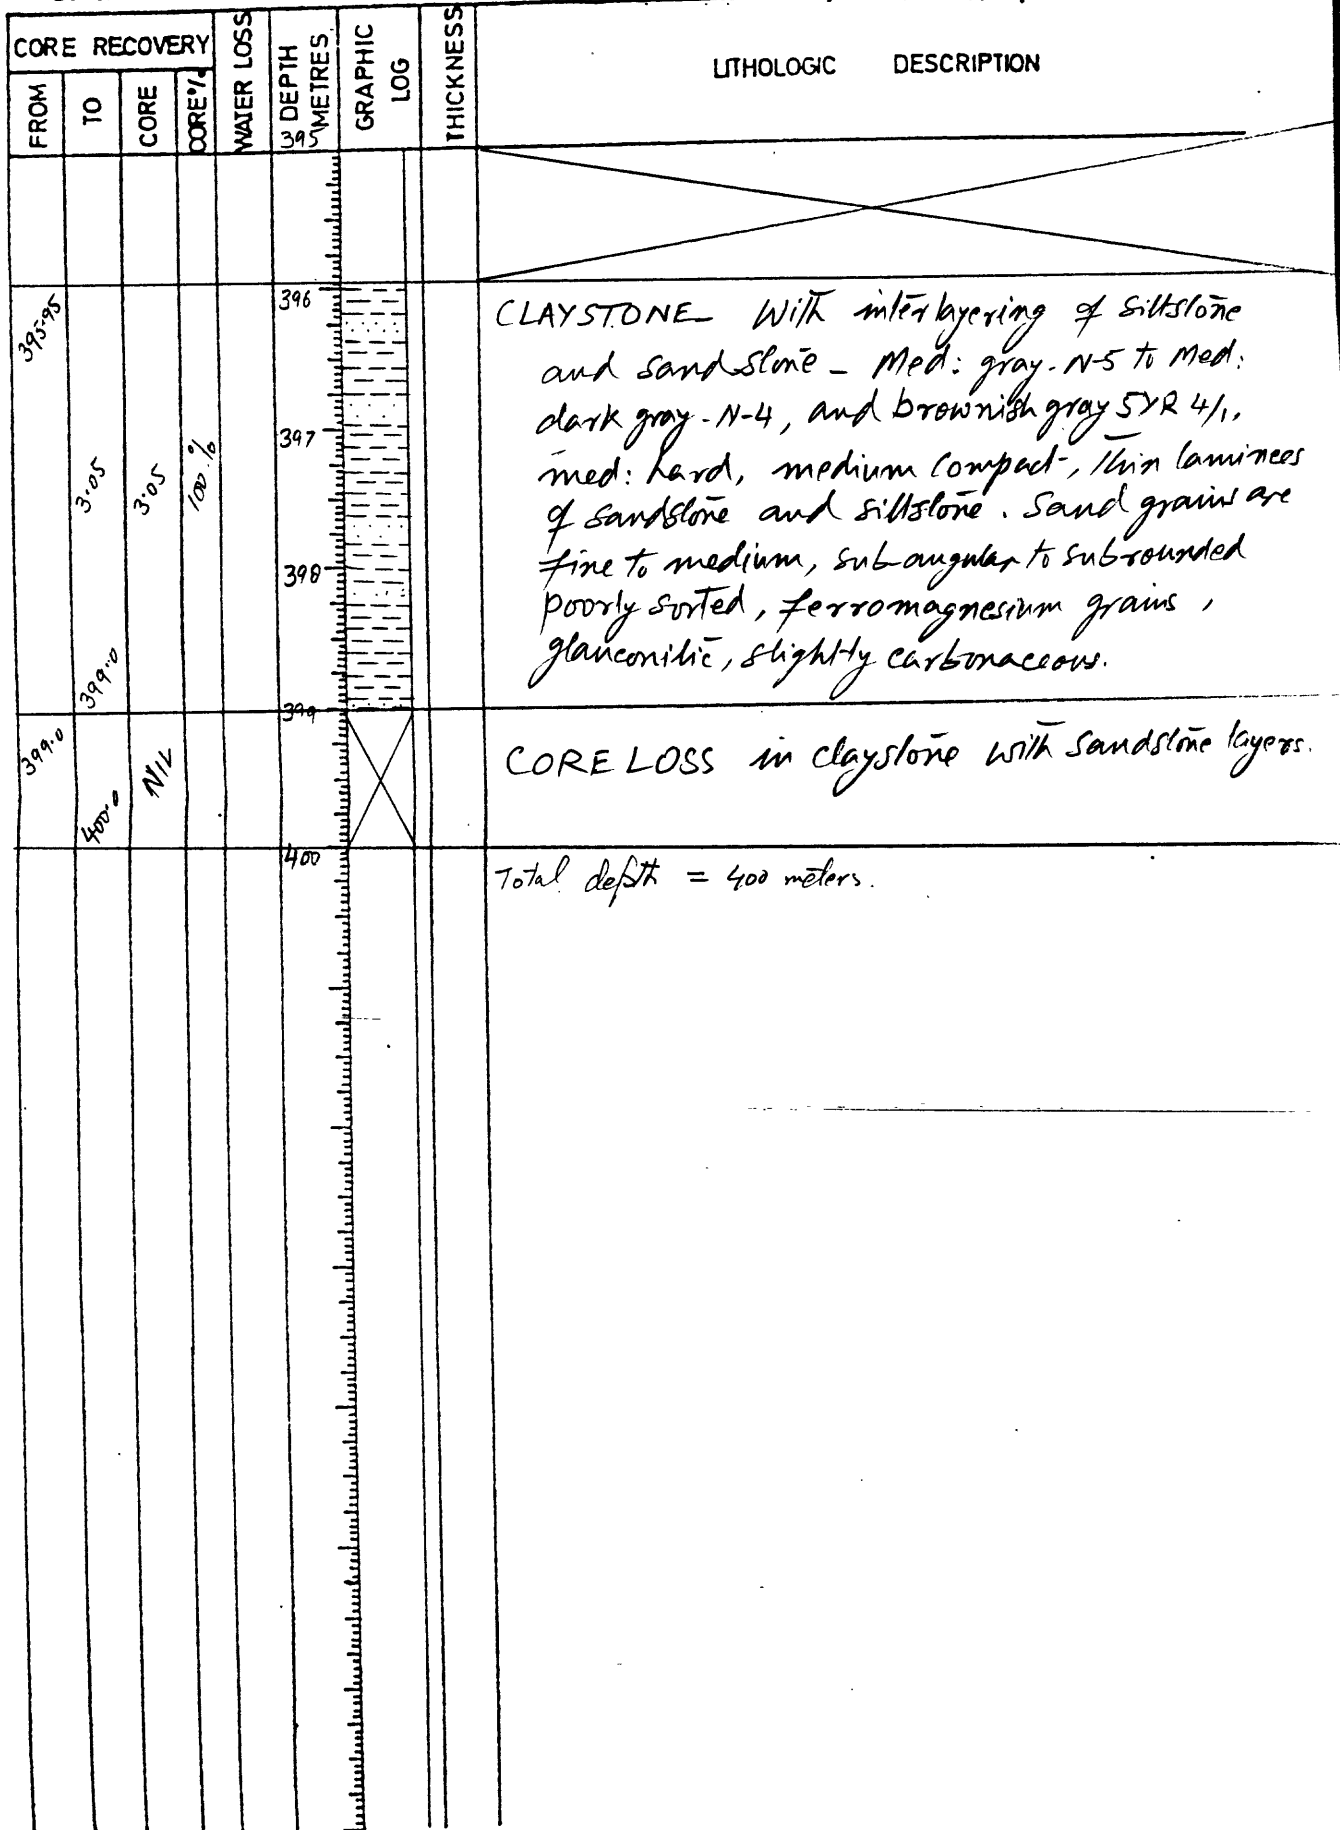 CORE RECOVERY
FROM
TO
CORE
CORE%
WATER LOSS
DEPTH METRES
395
GRAPHIC LOG
THICKNESS
LITHOLOGIC DESCRIPTION
395.95
3.05
399.0
3.05
100%
396
397
398
399
CLAYSTONE_ With interlayering of siltstone
and sandstone - Med: gray-N-5 to Med:
dark gray-N-4, and brownish gray 5YR 4/1,
med: hard, medium compact, thin laminees
of sandstone and siltstone. Sand grains are
fine to medium, sub-angular to subrounded
poorly sorted, ferromagnesium grains,
glauconitic, slightly carbonaceous.
399.0
400.0
NIL
CORE LOSS in claystone with sandstone layers.
400
Total depth = 400 meters.